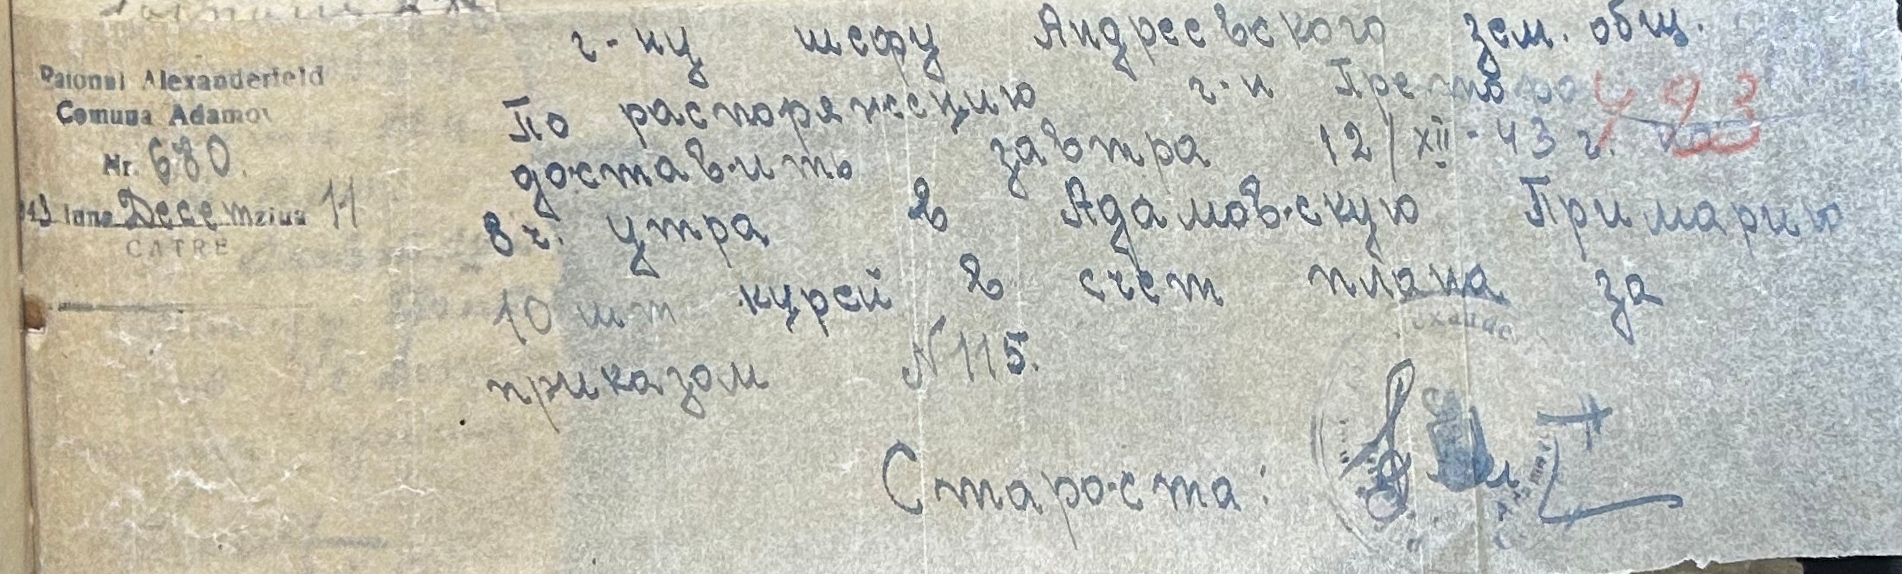 Raionul Alexanderfeld
Comuna Adamov
Nr. 680.
943 luna Decemzius 11
CATRE
г-ну шефу Андреевского зем. общ.
По распоряжению г-н Претора
493
доставить завтра 12/XII-43 г. на
8 ч. утра в Адамовскую Примарию
10 шт курей в счет плана за
приказом N115.
Староста: